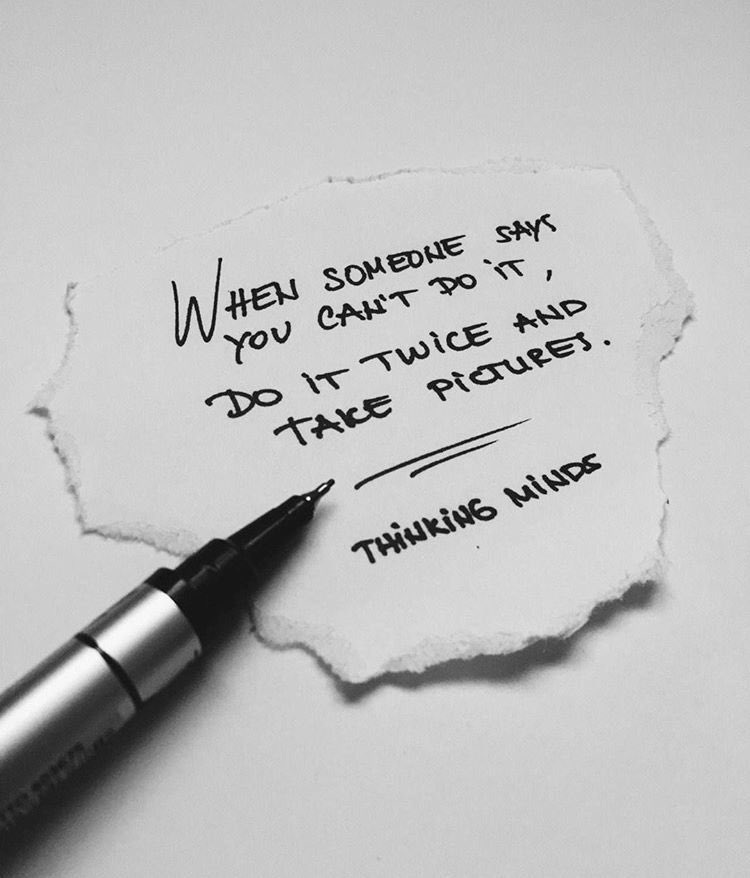 WHEN SOMEONE SAYS
YOU CAN'T DO IT,
DO IT TWICE AND
TAKE PICTURES.
THINKING MINDS